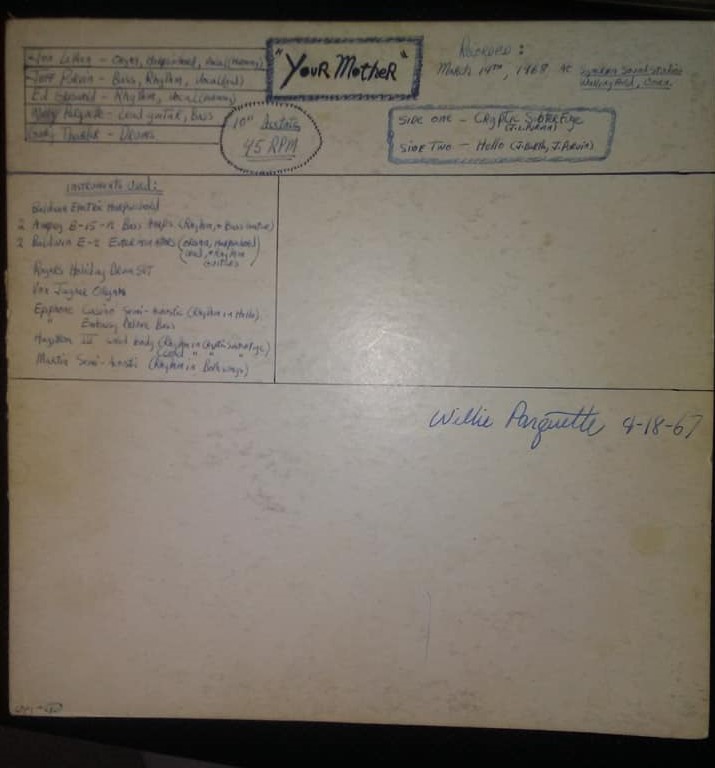 Organ, Harpsichord, Vocal (Harmony)
Jeff Purvin - Bass, Rhythm, Vocal (Lead)
Ed - Rhythm, Vocal (Harmony)
- Lead guitar, Bass
- Drums
"YOUR MOTHER"
10" Acetate
45 RPM
Recorded:
March 19TH, 1968 At Syncron Sound Studios
Wallingford, Conn.
SIDE ONE - Cryptic Subterfuge
(J. Purvin)
SIDE TWO - Hello (J. Purvin)
INSTRUMENTS Used:
Baldwin Electric Harpsichord
2 Ampeg B-15-N Bass Amps (Rhythm, + Bass Guitar)
2 Baldwin E-2 Exterminators (organ, Harpsichord)
Lead, + Rhythm
Guitars
Rogers Holiday Drum Set
Vox Jaguar Organ
Epiphone Casino Semi-Acoustic (Rhythm in Hello)
" Embassy Deluxe Bass
Hagstrom III Solid body (Rhythm in Cryptic Subterfuge)
(Lead " " "
Martin Semi-Acoustic (Rhythm in Both songs)
Willie Parquette 8-18-67